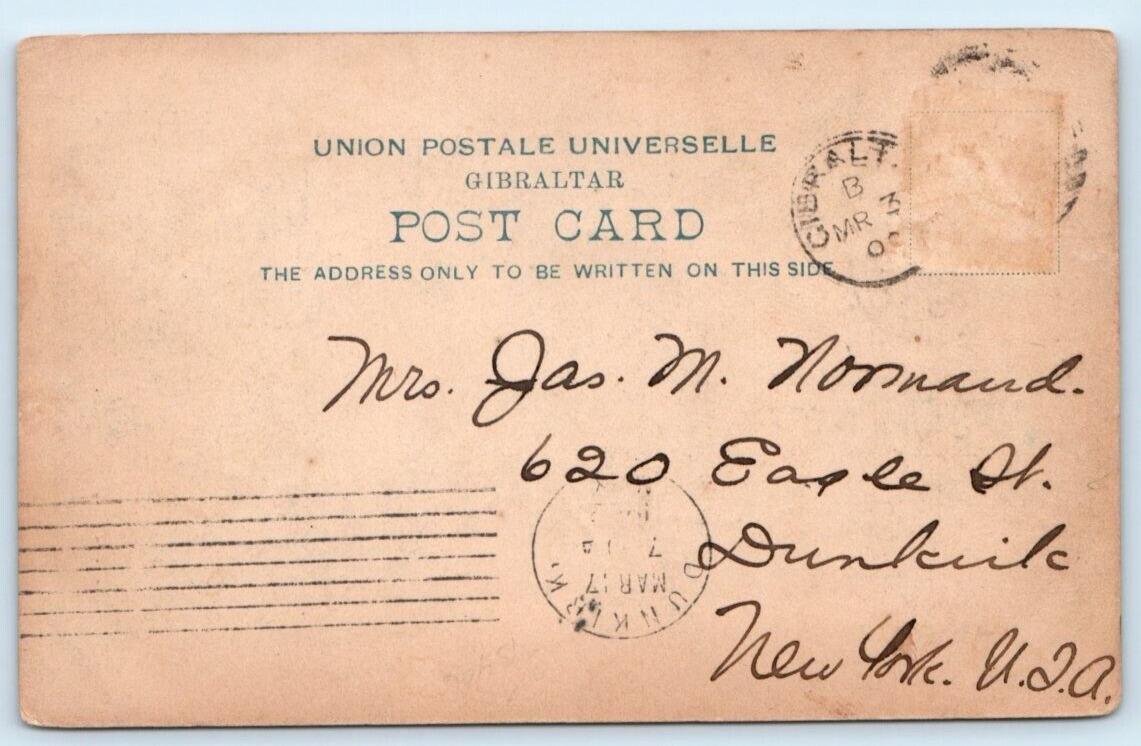 UNION POSTALE UNIVERSELLE
GIBRALTAR
POST CARD
THE ADDRESS ONLY TO BE WRITTEN ON THIS SIDE
GIBRALT
B
MR 3
Mrs. Jas. M. Normand.
620 Eagle St.
Dunkirk
New York. U.S.A.
DUNKIRK
MAR 17